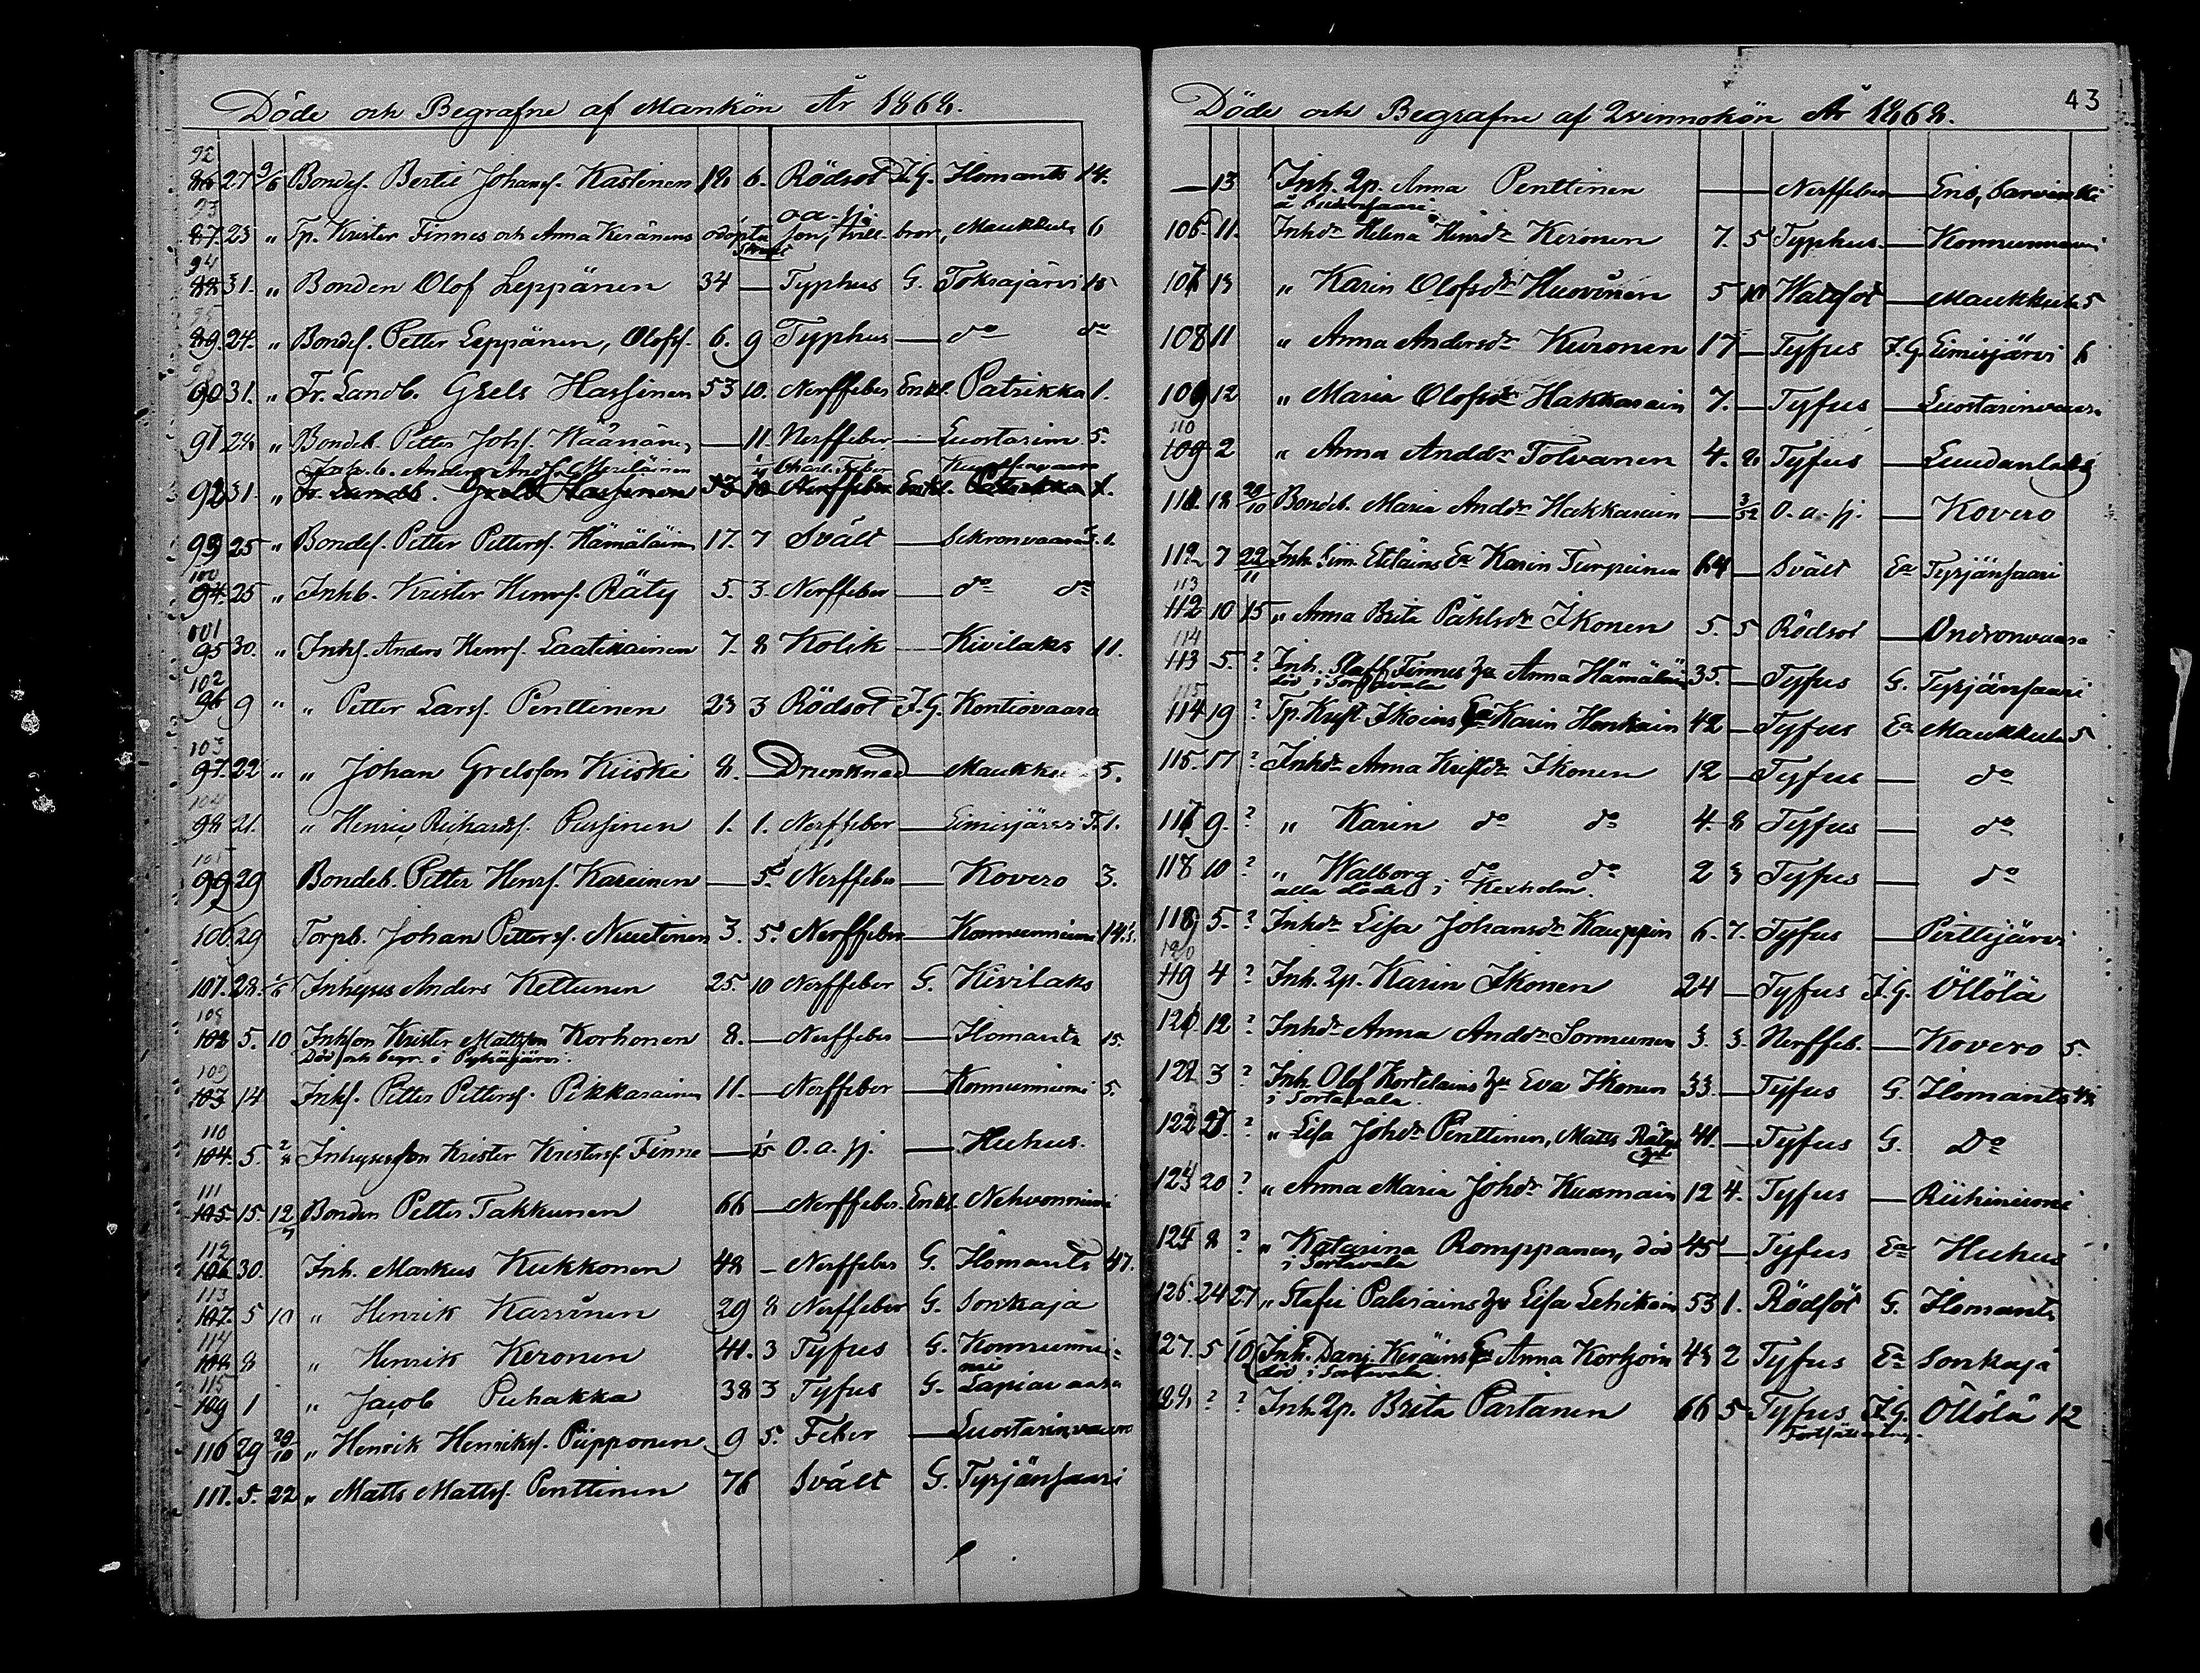 Döde och Begrafne af Mankön År 1868.
92
86 27 9/6 Bondes. Bertil Johans. Kastinen 18 6. Rödsot J.G. Ilomants 14.
93
87. 23 " Tp. Krister Finnes och Anna Keränens odöpta son, tvill-bror, Maukkula 6
o.a.sj.
94
88 31. " Bonden Olof Leppänen 34 — Typhus G. Toksajärvi 15
95
89. 24. " Bondes. Petter Leppänen, Olofss. 6. 9 Typhus — do do
90 31. " Fr. Landb. Grels Hassinen 53 10. Nerffeber Enkl. Patrikka 1.
91 28 " Bondeb. Petter Johs. Wäänänen — 11. Nerffeber — Luostarinv. 5.
Anders Ands. Meriläinen
92 31. " Fr. Landb. Grels Hassinen 53 10 Nerffeber Enkl. Patrikka 1.
99 25 " Bondes. Petter Petters. Hämäläinen 17. 7 Svält — Sikronvaara 1.
100
94. 25 " Inhb. Krister Henrs. Räty 5. 3. Nerffeber — do do
101
95 30. " Inhs. Anders Henrs. Laatikainen 7. 8 Kolik — Kivilaks 11.
102
96 9 " " Petter Larss. Penttinen 23 3 Rödsot J.G. Kontiovaara
103
97. 22 " " Johan Grelsson Kiiski 8. — Drunknad — Maukkula 5.
104
98 21. " Henric Richards. Pussinen 1. 1. Nerffeber — Eimisjärvi 1.
105
99 29 Bondeb. Petter Henrs. Kareinen — 5. Nerffeber — Kovero 3.
106 29 Torpb. Johan Petters. Nuutinen 3. 5. Nerffeber — Konnunniemi
107. 28. Inhyses Anders Kettunen 25. 10 Nerffeber G. Kivilaks
108
102 5. 10 Inhson Krister Mattsson Korhonen 8. — Nerffeber — Ilomants 15.
Död och begr. i Pyhäjärvi.
109
103 14 Inhs. Petter Petters. Pikkarainen 11. — Nerffeber — Konnunniemi 5.
110
104. 5. Inhyseson Krister Kristers. Finne — 1/15 O.a.sj. — Huhus.
111
105 15. 12 Bonden Petter Takkunen 66 — Nerffeber. Enkl. Nehvonniemi
112
106 30. Inh. Markus Kukkonen 48 — Nerffeber G. Ilomants 47.
113
107. 5 10 " Henrik Karvonen 29 8 Nerffeber G. Sonkaja
114
108 8 " Henrik Keronen 41. 3 Tyfus G. Konnunniemi
115
109 1 " Jacob Puhakka 38 3 Tyfus G. Lapiovaara
116 29 29/10 " Henrik Henriks. Piipponen 9 5. Feber — Luostarinvaara
117. 5. 22 " Matts Matts. Penttinen 76 Svält G. Tyrjänsaari
43
Döde och Begrafne af Qvinnokön År 1868.
— 13 Inh. Qp. Anna Penttinen — — Nerffeber — Enb, Sarvinki
106. 11. Inhdr Helena Henrdr Keronen 7. 5 Typhus — Konnunniemi
107 13 " Karin Olofsdr Huovinen 5 10 Wattsot — Maukkula 5
108 11 " Anna Andersdr Kuronen 17 — Tyfus J.G. Eimisjärvi 6
109 12 " Maria Olofsdr Hakkarain 7. — Tyfus — Luostarinvaara
110
109 2 " Anna Anddr Tolvanen 4. 8 Tyfus — Luudanlaks
111. 18 29/10 Bondeb. Maria Anddr Hakkarain — 3/52 O.a.sj. — Kovero
112 7 22/11 Inh. Sim. Eteläins Ea Karin Turpeinen 64 — Svält Ea Tyrjänsaari
113
112 10 15 " Anna Brita Påhlsdr Ikonen 5. 5 Rödsot — Undronvaara
114
113 5. ? Inh. Staff. Finnes hu Anna Hämäläi 35. — Tyfus G. Tyrjänsaari
död i Sordavala
115
114 19 ? Tp. Krist Ikoins Ea Karin Honkain 42 — Tyfus Ea Maukkula 5
116. 17 ? Inhdr Anna Kristdr Ikonen 12 — Tyfus — do
117 9. ? " Karin do do 4. 8 Tyfus — do
118 10 ? " Walborg do do 2 3 Tyfus — do
alla döda i Kexholm.
119 5. ? Inhdr Lisa Johansdr Kauppin 6. 7. Tyfus — Pirttijärvi
120
119 4 ? Inh. Qp. Karin Ikonen 24 — Tyfus J.G. Öllölä
121 12 ? Inhdr Anna Anddr Sormunen 3. 3. Nerffeb. — Kovero 5.
122 3 ? Inh. Olof Kortelains hu Eva Ikonen 33. — Tyfus G. Ilomants
i Sortavala.
123 27. ? " Lisa Johdr Penttinen, Matts Rätys hu 41. — Tyfus G. Do
124 20 ? " Anna Maria Johdr Kuosmain 12 4. Tyfus — Riihiniemi
125 8 ? " Katarina Romppanen, död 45 — Tyfus Ea Huhus
i Sortavala
126. 24 27 " Stafil Palviains hu Lisa Lehikoin 53 1. Rödsot G. Ilomants
127. 5 10 Inh. Danj. Keräins Ea Anna Korhoin 43 2 Tyfus Ea Sonkaja
död i Sortavala.
128. ? ? Inh. Qp. Brita Partanen 66 5 Tyfus J.G. Öllölä 12